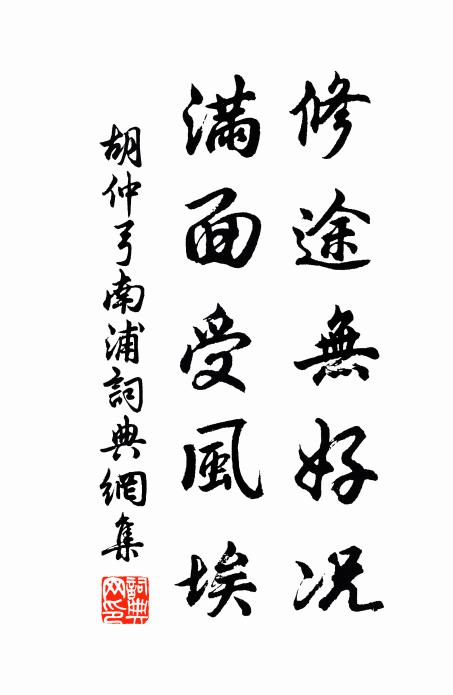 修途無好況
滿面受風埃
胡仲弓南浦詞典網集
詞典網印